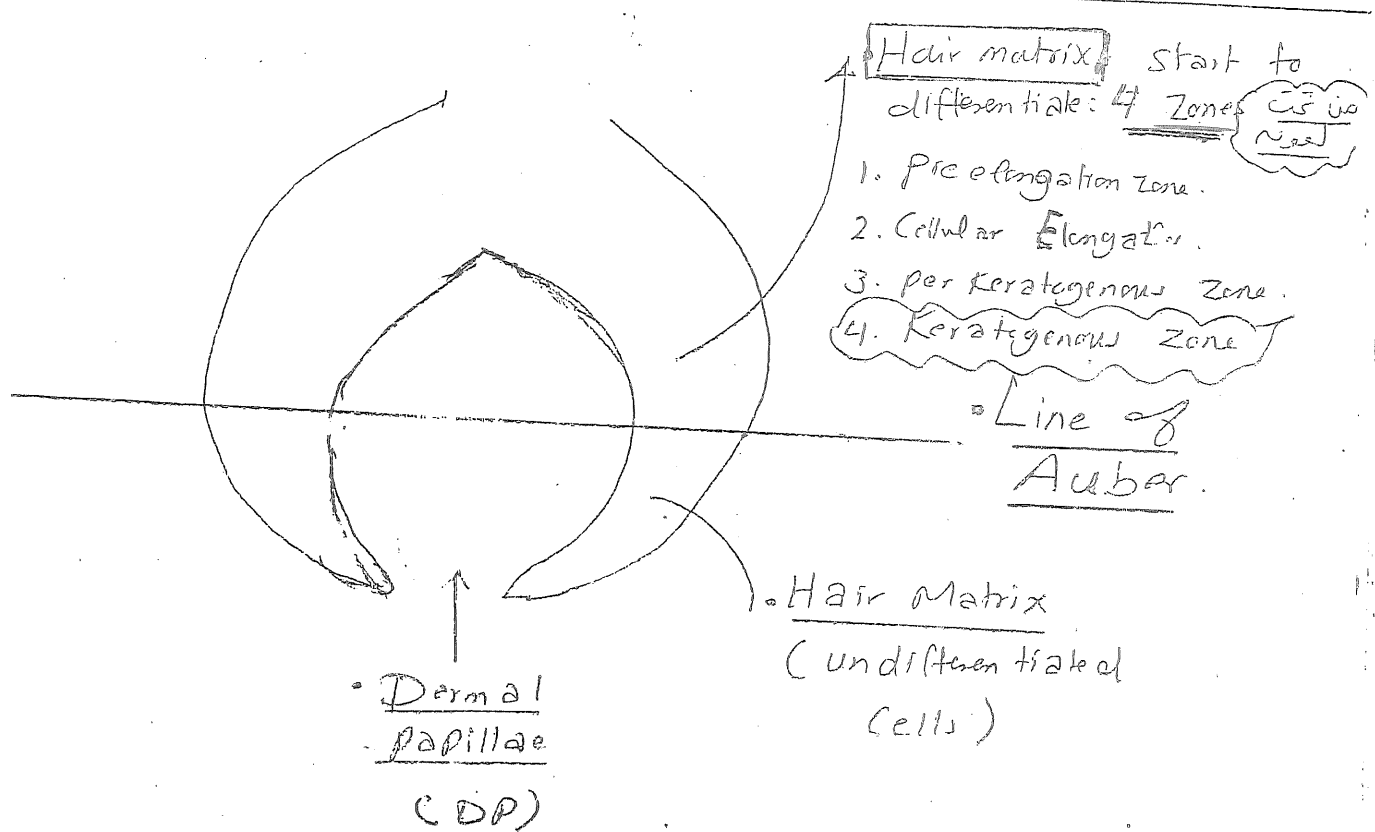 Hair matrix start to
differentiate: 4 Zones من تحت
لفوق
1. Pre elongation zone.
2. Cellular Elongation.
3. per Keratogenous Zone.
4. Keratogenous Zone
• Line of
Auber.
• Hair Matrix
(undifferentiated
Cells)
• Dermal
papillae
(DP)